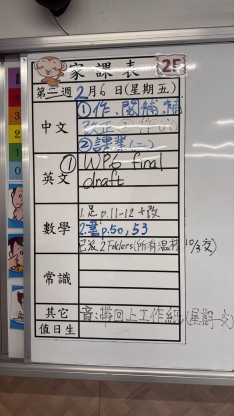 家課表 2F
第二週 2月6日(星期五)
中文 ①作、閱補、
改正
②課業(二)
英文 ① WP6 final
draft
數學 1.足 p.11-12 + 改
2.書 p.50, 53
已派 2 Folders (所有溫 10/3交)
常識
其它 音:帶回上工作紙 (星期一交)
值日生